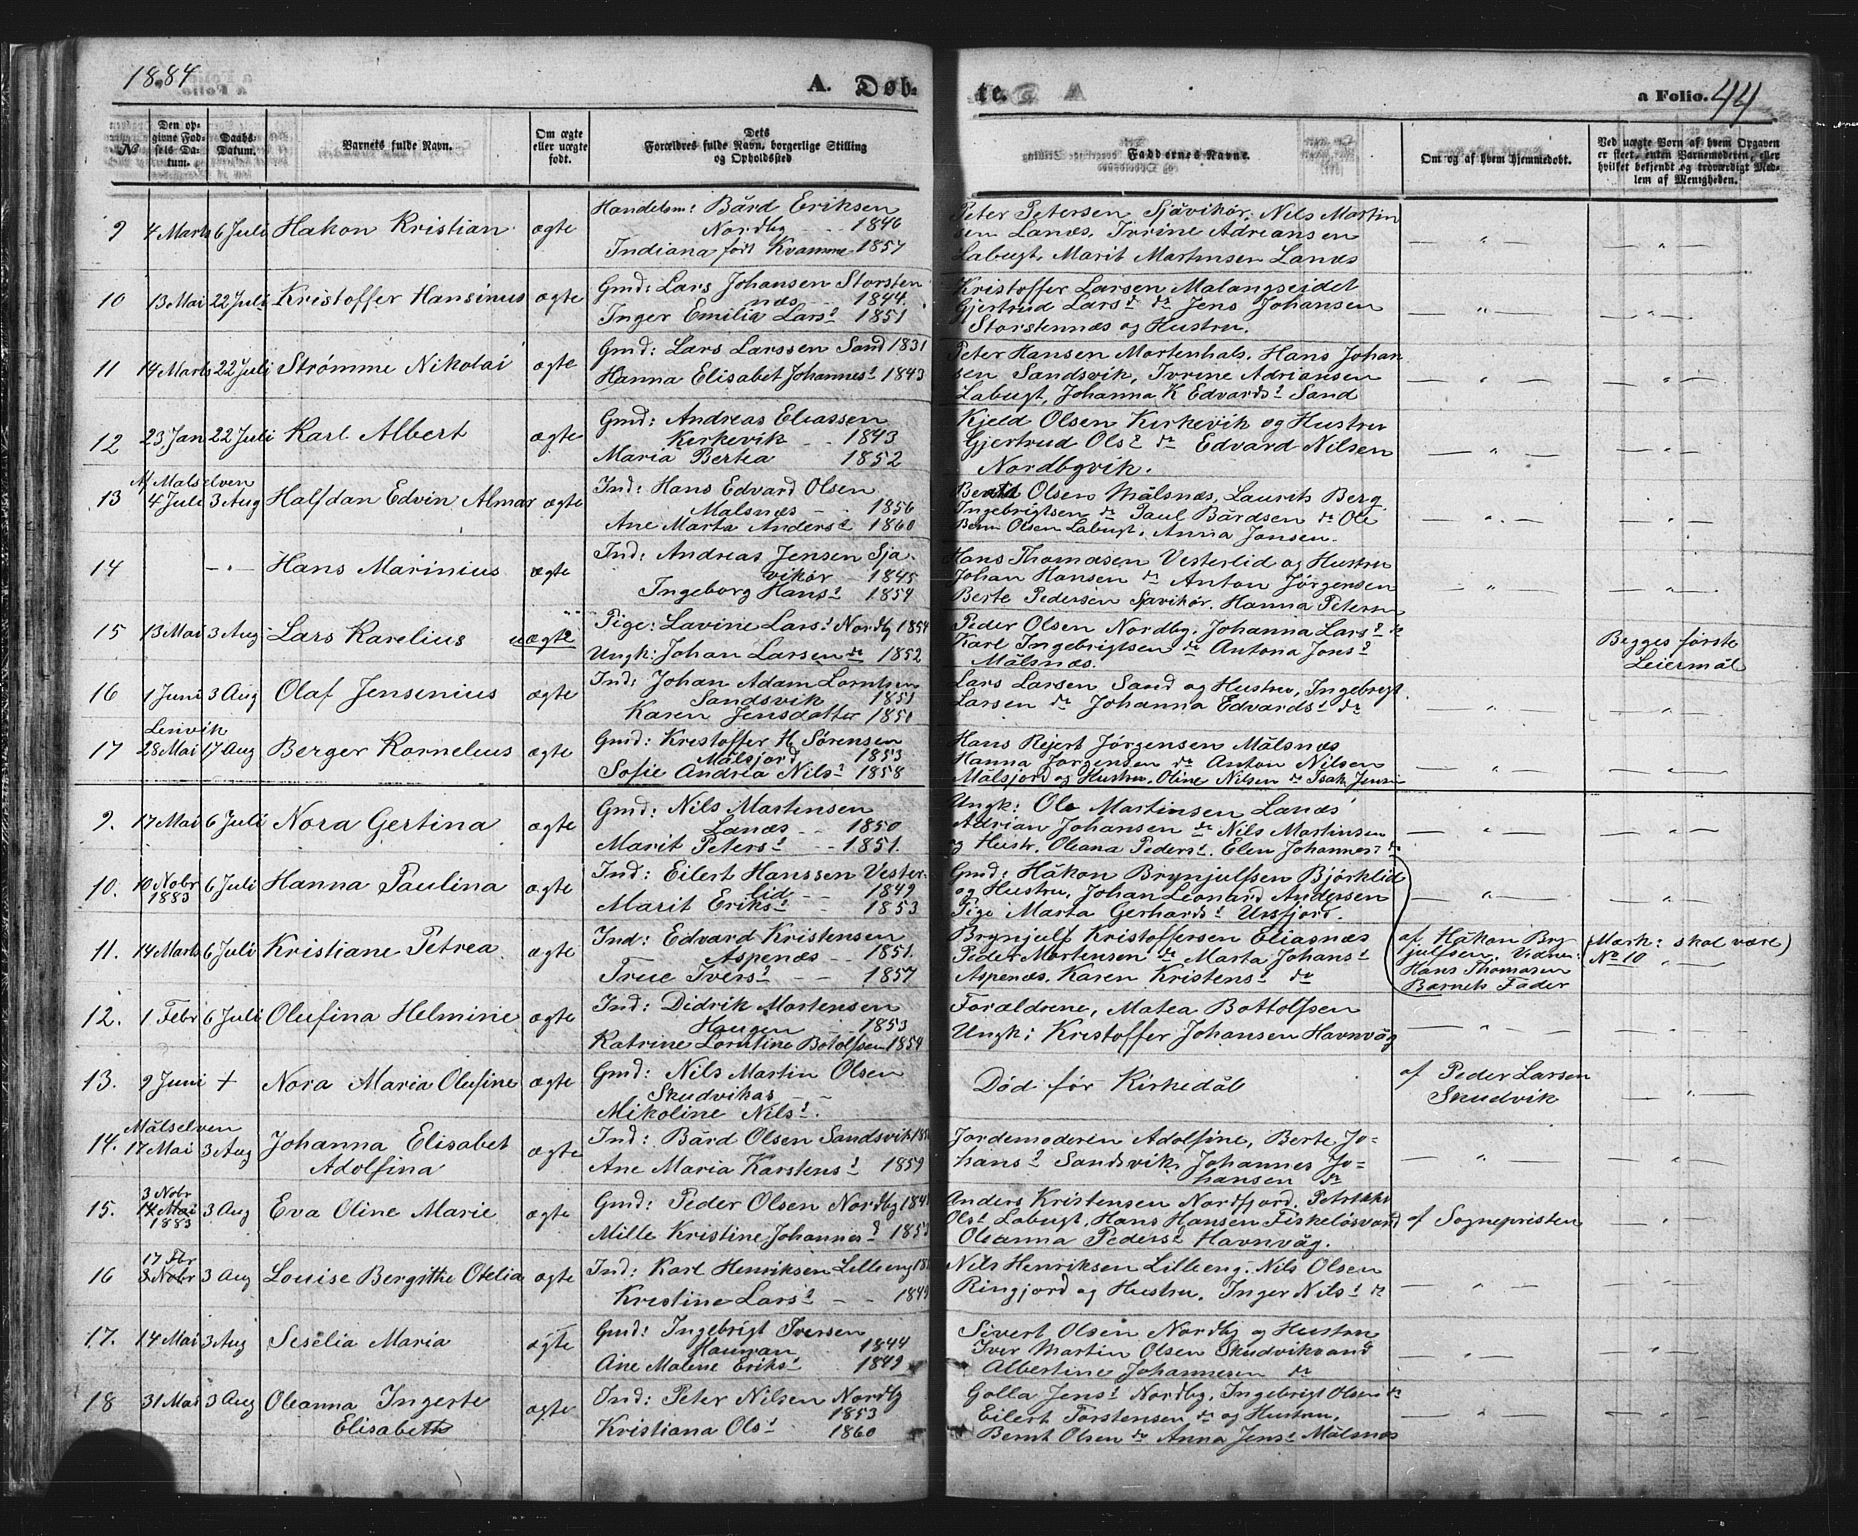 1884
A. Døb-
te.
a Folio. 44
No
Den op-
givne Fød-
sels Da-
tum.
Daabs-
Datum.
Barnets fulde Navn.
Om ægte
eller uægte
født.
Dets
Forældres fulde Navn, borgerlige Stilling
og Opholdssted
Faddernes Navne.
Om og af hvem hjemmedøbt.
Ved uægte Born af hvem Opgaven
er skeet, enten Barnemoderen, eller
hvilket bekjendt og troværdigt Med-
lem af Menigheden.
9 4 Marts 6 Juli Hakon Kristian ægte
Handelsm: Bård Eriksen
Nordby 1846
Indiana født Kvamme 1857
Peter Petersen Sjåvikør. Nils Martin
sen Lanæs, Ivrine Adriansen
Labugt, Marit Martinsen Lanæs
10 13 Mai 22 Juli Kristoffer Hansinus ægte
Gmd: Lars Johansen Storsten
næs 1844.
Inger Emilia Larsd 1851
Kristoffer Larsen Malangseidet
Gjertrud Larsd do Jens Johansen
Storstennæs og Hustru.
11 14 Marts 22 Juli Strømme Nikolai ægte
Gmd: Lars Larssen Sand 1831
Hanna Elisabet Johannesd 1843
Peter Hansen Mortenhals, Hans Johan
sen Sandsvik, Ivrine Adriansen
Labugt, Johanna K Edvardsd Sand
12 23 Jan 22 Juli Karl Albert ægte
Gmd: Andreas Eliassen
Kirkevik 1843
Maria Bertea 1852
Kjeld Olsen Kirkevik og Hustru
Gjertrud Olsd do Edvard Nilsen
Nordbyvik.
Målselven
13 4 Juli 3 Aug Halfdan Edvin Almar ægte
Ind: Hans Edvard Olsen
Målsnæs 1856
Ane Marta Andersd 1860
Olsen Målsnæs, Laurits Berg
Ingebrigtsen do Paul Bårdsen do Ole
Bern Olsen Labugt, Anna Jonsen.
14 Hans Marinius ægte
Ind: Andreas Jensen Sjå-
vikør 1845
Ingeborg Hansd 1854
Hans Thomasen Vesterlid og Hustru
Johan Hansen do Anton Jørgensen
Berte Pedersen Sjåvikør. Hanna Petersen
15 13 Mai 3 Aug Lars Karelius uægte
Pige: Lavine Larsd Nordby 1854
Ungk: Johan Larsen do 1852
Peder Olsen Nordby, Johanna Larsd do
Karl Ingebrigtsen do Antona Jonsd
Målsnæs.
Begges første
Leiermål
16 1 Juni 3 Aug Olaf Jensenius ægte
Ind: Johan Adam Lorntsen
Sandsvik 1851
Karen Jensdatter 1851
Lars Larsen Sand og Hustru, Ingebrigt
Larsen do Johanna Edvardsd do
Lenvik
17 28 Mai 17 Aug Berger Kornelius ægte
Gmd: Kristoffer H Sørensen
Målsjord 1853
Sofie Andrea Nilsd 1858
Hans Rejert Jørgensen Målsnæs
Hanna Jørgensen do Anton Nilsen
Målsjord og Hustru, Oline Nilsen do Isak Jensen
9. 17 Mai 6 Juli Nora Gertina ægte
Gmd: Nils Martensen
Lanæs 1850
Marit Petersd 1851.
Ungk: Ole Martinsen Lanæs
Adrian Johansen do Nils Martinsen
og Hustr. Oleana Pedersd. Elen Johannesd do
10. 10 Nobr 1883 6 Juli Hanna Paulina ægte
Ind: Eilert Hanssen Vester-
lid 1849
Marit Eriksd 1853
Gmd: Håkon Brynjulfsen Bjørklid
og Hustru, Johan Leonard Andersen
Pige Marta Gerhardsd Ursfjord.
11. 14 Marts 6 Juli Kristiane Petrea ægte
Ind: Edvard Kristensen
Aspenæs 1851.
True Iversd 1857
Brynjulf Kristoffersen Eliasnæs
Peder Mortensen do Marta Johansd
Aspenæs, Karen Kristensd do
af Håkon Bry
njulfsen, Vidner:
Hans Thomasen
Barnets Fader
(Mærk: skal være)
No 10
12. 1 Febr 6 Juli Olufina Helmine ægte
Ind: Didrik Mortensen
Haugen 1853
Katrine Lorntine Botolfsen 1854
Forældrene, Matea Bottolfsen
Ungk: Kristoffer Johansen Havnvåg
13. 9 Juni + Nora Maria Olufine ægte
Gmd: Nils Martin Olsen
Skudvikås
Mikoline Nilsd.
Død før Kirkedåb
af Peder Larsen
Skudvik
Målselven
14. 17 Mai 3 Aug Johanna Elisabet
Adolfina ægte
Ind: Bård Olsen Sandsvik
Ane Maria Karstensd 1859
Jordemoderen Adolfine, Berte Jo-
hansd Sandsvik, Johannes Jo-
hansen do
15. 3 Nobr 14 Mai 1883 3 Aug Eva Oline Marie ægte
Gmd: Peder Olsen Nordby
Mille Kristine Johannesd
Anders Kristensen Nordfjord. Petrikke
Olsd Labugt, Hans Hansen Fiskeløsvand
Oleanna Pedersd Havnvåg.
af Sognepresten
16 17 Fbr 3 Nobr 3 Aug Louise Bergitthe Otelia ægte
Ind: Karl Henriksen Lilleeng
Kristine Larsd 1849
Nils Henriksen Lilleeng. Nils Olsen
Ringjord og Hustru, Inger Nilsd do
17. 14 Mai 3 Aug Seselia Maria ægte
Gmd: Ingebrigt Iversen
1844
Ane Malene Eriksd 1849
Sivert Olsen Nordby og Hustru
Iver Martin Olsen Skudvikvand
Albertine Johannesen do
18 31 Mai 3 Aug Oleanna Ingerte
Elisabeth ægte
Ind: Peter Nilsen Nordby
1853
Kristiana Olsd 1860
Golla Jensd Nordby, Ingebrigt Olsen do
Eilert Torstensen do og Hustru,
Bernt Olsen do Anna Jensd Målsnæs